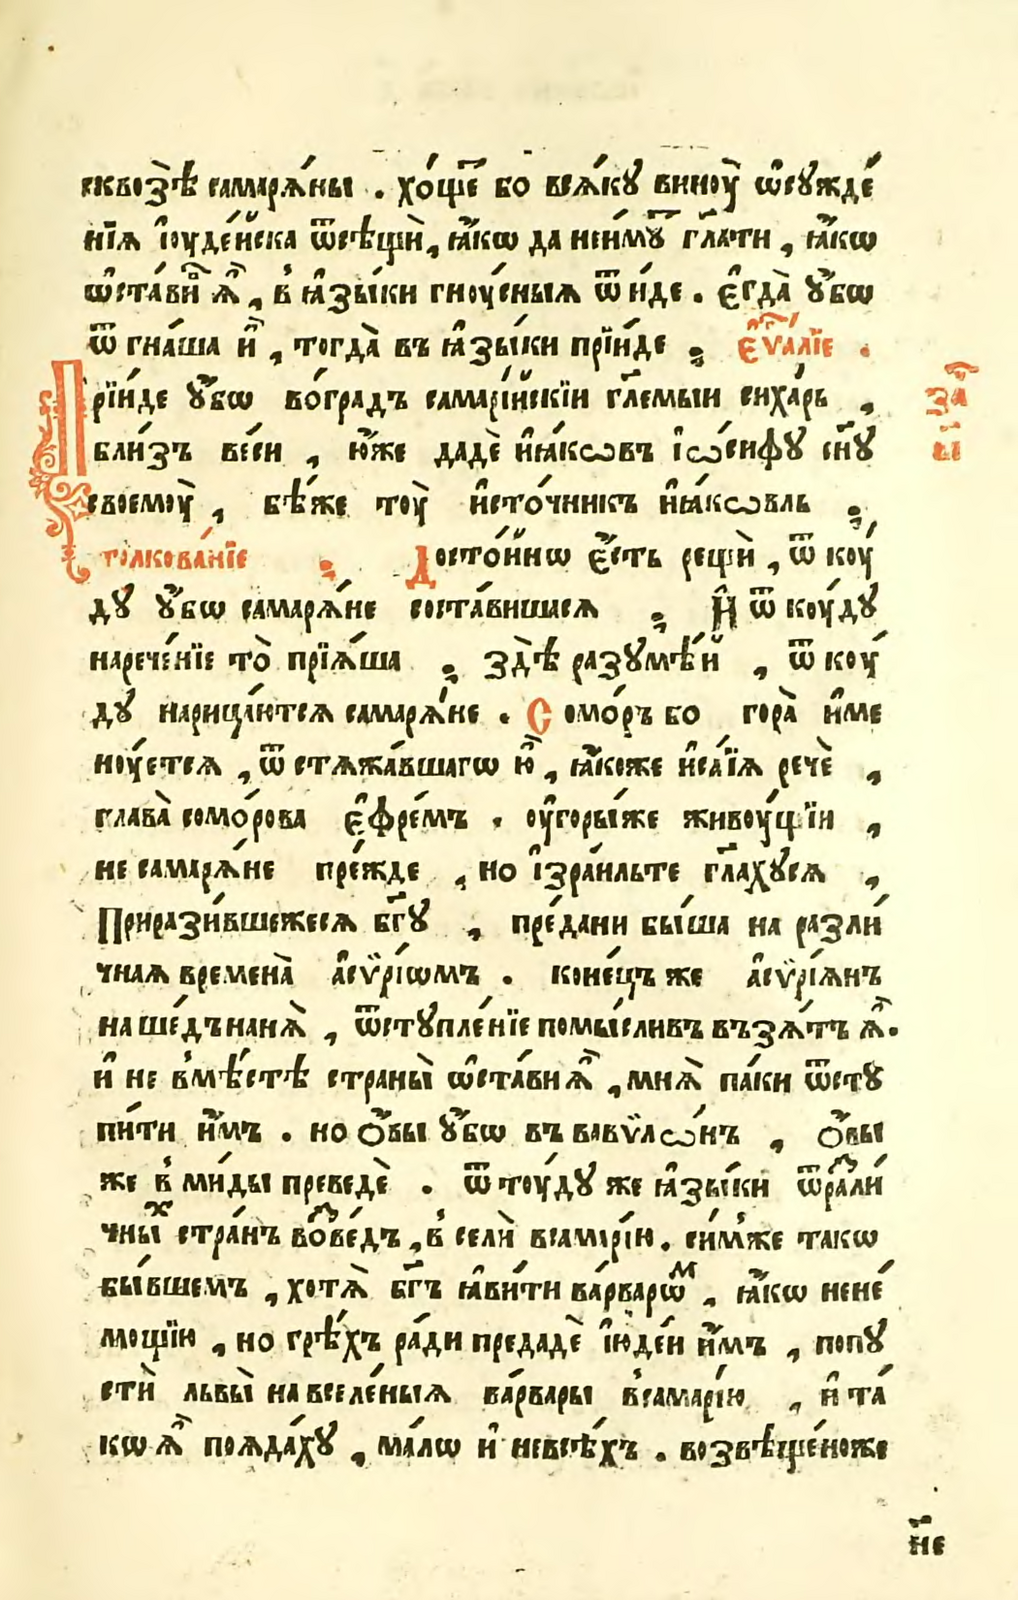 сквозѣ̀ самарѧ́ны . хо́щеⷮ бо всѧ́кꙋ виноу̀ ѡ҆сꙋжде́
нїѧ і҆оуде́йска ѿсѣщѝ, ꙗ҆́кѡ да неи́мꙋⷮ гл҃ати , ꙗ҆́кѡ
ѡ҆ста́виⷡ ѧ҆̀ , в̾ ꙗ҆зы́ки гноу́сныѧ ѿи́де . є҆гда̀ ᲂу҆́бѡ
ѿгна́ша и҆̀ , тогда̀ въ ꙗ҆зы́ки прїи́де ; є҆ѵⷢ҇а́лїе .
Прїи́де ᲂу҆́бѡ во́градъ самарі́йскїи гл҃емыи сиха́рь ,
бли́зъ ве́си , ю҆́же дадѐ и҆ꙗ́кѡвъ і҆ѡ́сифꙋ сн҃ꙋ
своемоу̀ , бѣ́же тоу̀ и҆сто́чникъ и҆ꙗ́кѡвль ;
толкова́нїе ; Досто́йнѡ є҆́сть рещѝ , ѿ коу́
дꙋ ᲂу҆́бѡ самарѧ́не соста́вишасѧ ; И҆ ѿ коу́дꙋ
нарече́нїе то̀ прїѧ́ша ; здѣ̀ разꙋмѣ́й , ѿ коу́
дꙋ нарица́ютсѧ самарѧ́не . Сомо́ръ бо гора̀ и҆ме
ноу́етсѧ , ѿ стѧжа́вшагѡ ю҆̀ , ꙗ҆́коже и҆са́їѧ речѐ ,
глава̀ сомо́рова є҆фре́мъ . оу҆горы́же живоу́щїи ,
не самарѧ́не пре́жде , но і҆зра́ильте гл҃ахꙋсѧ ,
Приразившежесѧ бг҃ꙋ , пре́дани бы́ша на разли́
чнаѧ времена̀ а҆сѷрі́ѡмъ . коне́цъ же а҆сѷрі́ѧнъ
наше́дъ нанѧ̀ , ѿстꙋпле́нїе помы́сливъ възѧ́тъ ѧ҆̀ .
и҆ не в̾мѣ́стѣ страны̀ ѡ҆ста́ви ѧ҆̀ , мнѧ̀ па́ки ѿстꙋ
пи́ти и҆̀мъ . но ѻ҆́вы ᲂу҆́бѡ въ вавѷлѡ́нъ , ѻ҆́вы
же в̾ ми́ды преведѐ . ѿтоу́дꙋ же ꙗ҆зы́ки ѿраⷥли́
чныⷯ стра́нъ воⷥве́дъ , в̾селѝ всамі́рїю . си́мже такѡ
бы́вшемъ , хотѧ̀ бг҃ъ ꙗ҆ви́ти ва́рварѡⷨ , ꙗ҆́кѡ нене́
мощїю , но грѣ́хъ ра́ди предадѐ і҆юде́и и҆̀мъ , попꙋ
стѝ львы̀ на вселе́ныѧ ва́рвары в̾самарі́ю , и҆ та́
кѡ ѧ҆̀ поѧда́хꙋ , ма́лѡ и҆ невсѣ́хъ . возвѣще́ноже
за҃
в҃і
и҆̀се